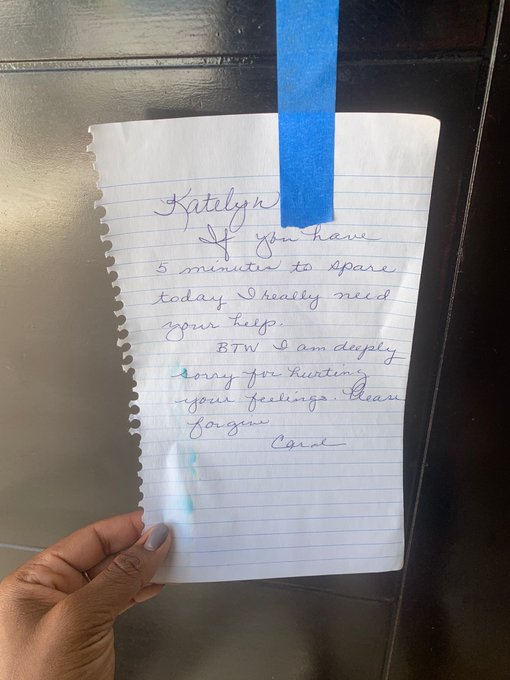 Katelyn
If you have
5 minutes to spare
today I really need
your help.
BTW I am deeply
sorry for hurting
your feelings. Please
forgive
Carol